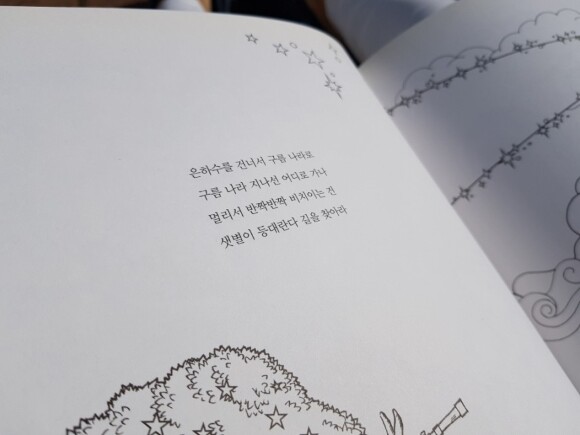 은하수를 건너서 구름 나라로
구름 나라 지나선 어디로 가나
멀리서 반짝반짝 비치이는 건
샛별이 등대란다 길을 찾아라